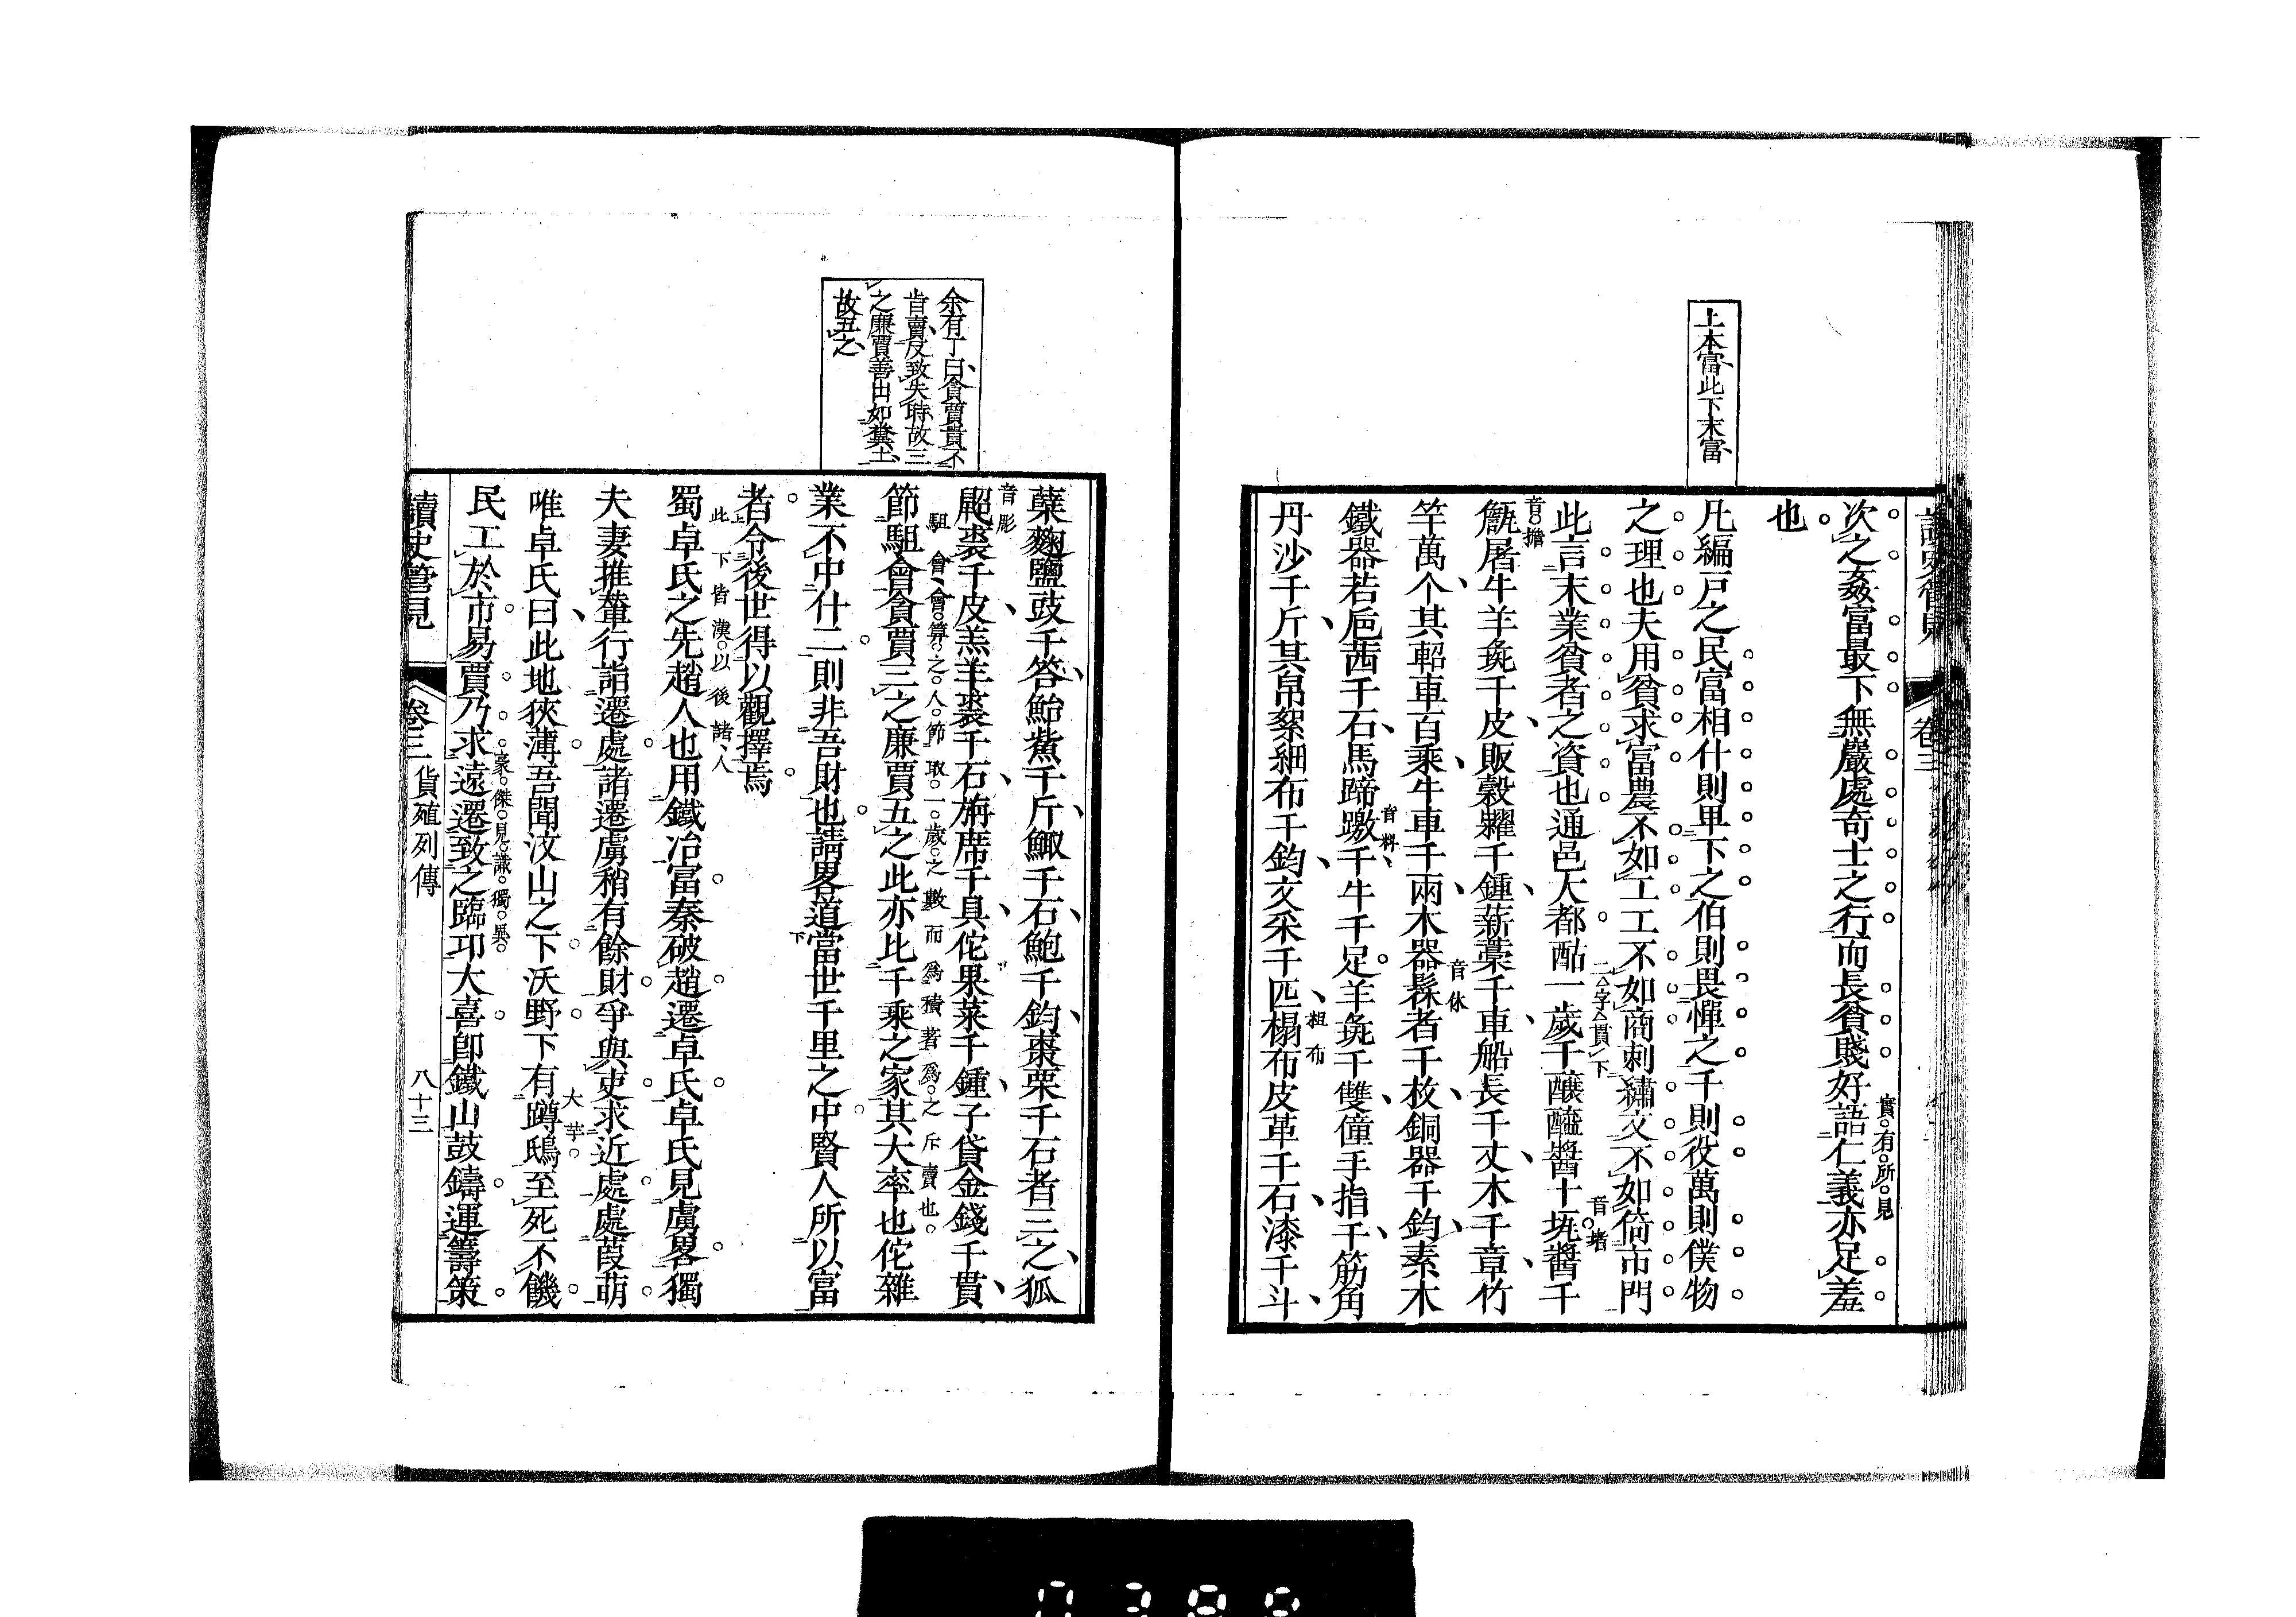 上本富此下末富
讀史管見
卷三
次之姦富最下無巖處奇士之行而長貧賤好語仁義亦足羞
實有所見
也
凡編戸之民富相什則卑下之伯則畏憚之千則役萬則僕物
之理也夫用貧求富農不如工工不如商刺繡文不如倚市門
二字貫下
此言末業貧者之資也通邑大都酤一歲千釀醯醬十瓨醬千
音墻
音擔
甔屠牛羊彘千皮販糓糶千鍾薪藁千車船長千丈木千章竹
竿萬个其軺車百乘牛車千兩木器髹者千枚銅器千鈞素木
音休
鐵器若巵茜千石馬蹄躈千牛千足羊彘千雙僮手指千筋角
音料
丹沙千斤其帛絮細布千鈞文采千匹榻布皮革千石漆千斗
粗布
余有丁曰貪賈貴不
肯賣反致失時故三
之廉賈善出如糞土
故五之
糵麴鹽豉千答鮐鮆千斤鯫千石鮑千鈞棗栗千石者三之狐
音彫
鼦裘千皮羔羊裘千石旃席千具佗果菜千鍾子貸金錢千貫
駔會會算之人節取一歲之數而爲積著爲之斥賣也
節駔會貪賈三之廉賈五之此亦比千乘之家其大率也佗雜
業不中什二則非吾財也請畧道當世千里之中賢人所以富
者令後世得以觀擇焉
此下皆漢以後諸人
蜀卓氏之先趙人也用鐵冶富秦破趙遷卓氏卓氏見虜畧獨
夫妻推輦行詣遷處諸遷虜稍有餘財爭與吏求近處處葭萌
唯卓氏曰此地狹薄吾聞汶山之下沃野下有蹲鴟至死不饑
大芋
民工於市易賈乃求遠遷致之臨邛大喜卽鐵山鼓鑄運籌策
豪傑見識獨異
讀史管見
卷三
貨殖列傳
八十三